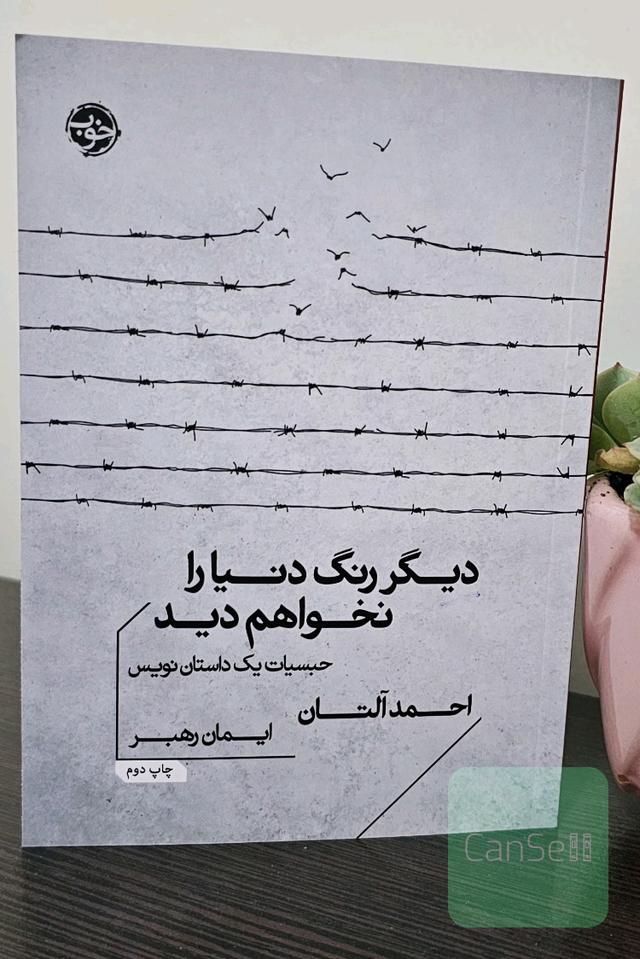 خوب
دیگر رنگ دنیا را
نخواهم دید
حبسیات یک داستان نویس
احمد آلتان
ایمان رهبر
چاپ دوم
CanSell